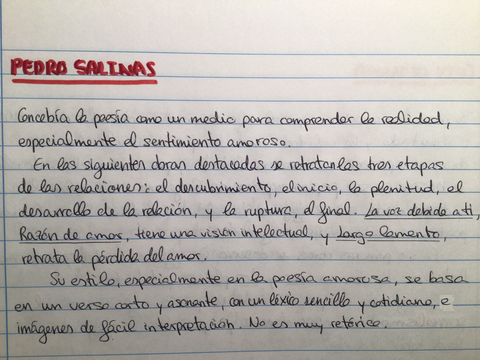 PEDRO SALINAS
Concebía la poesía como un medio para comprender la realidad,
especialmente el sentimiento amoroso.
En las siguientes obras destacadas se retratan las tres etapas
de las relaciones: el descubrimiento, el inicio, la plenitud, el
desarrollo de la relación, y la ruptura, el final. La voz debida a ti,
Razón de amor, tiene una visión intelectual, y Largo lamento,
retrata la pérdida del amor.
Su estilo, especialmente en la poesía amorosa, se basa
en un verso corto y asonante, con un léxico sencillo y cotidiano, e
imágenes de fácil interpretación. No es muy retórico.